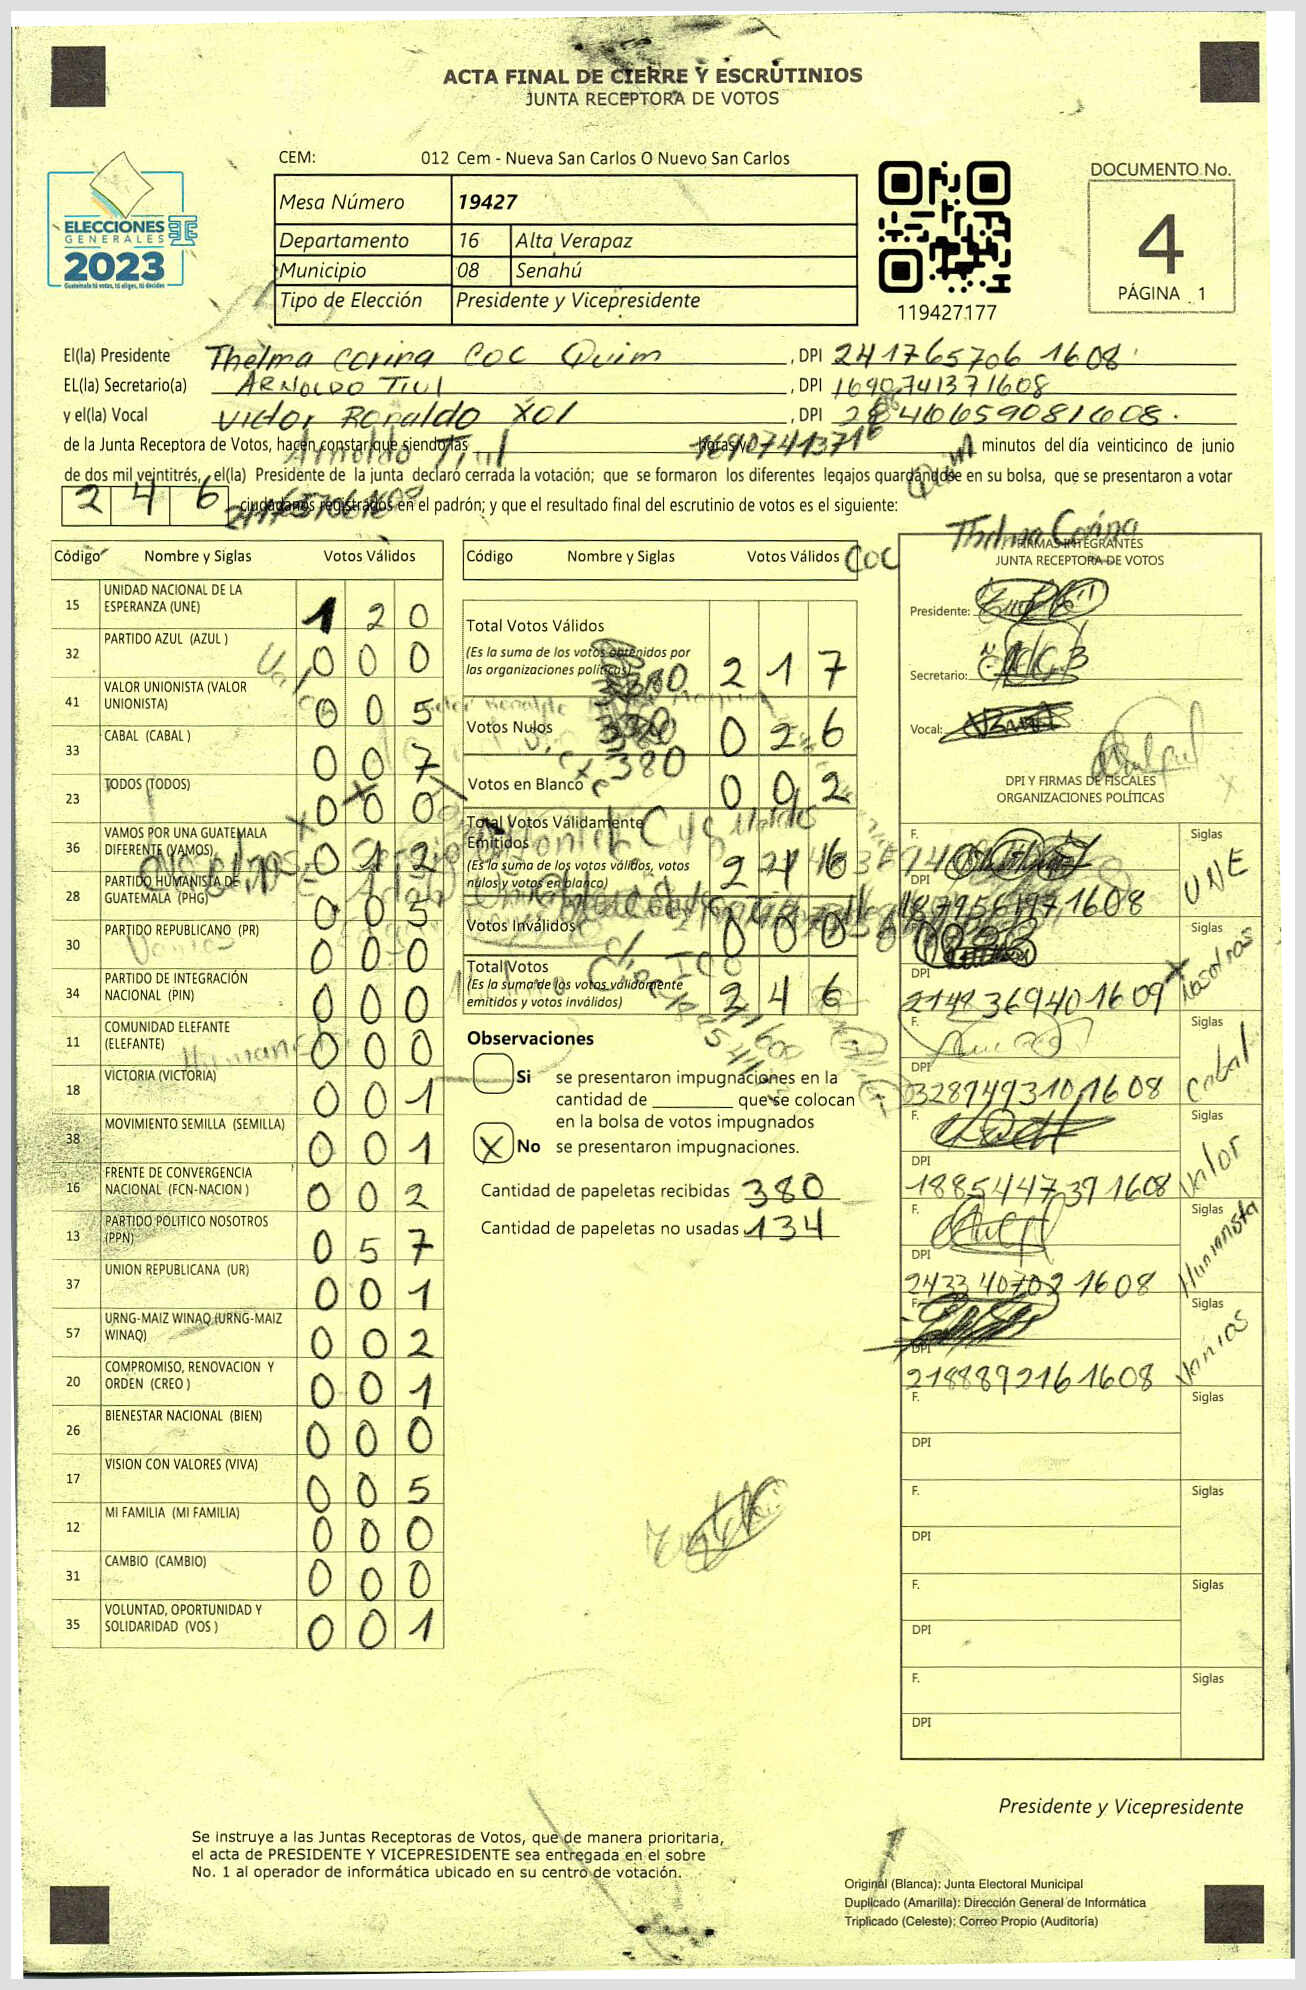 ACTA FINAL DE CIERRE Y ESCRUTINIOS
JUNTA RECEPTORA DE VOTOS
CEM: 012 Cem - Nueva San Carlos O Nuevo San Carlos
DOCUMENTO No.
4
PÁGINA 1
ELECCIONES
GENERALES
2023
Guatemala tú votas, tú eliges, tú decides
Mesa Número 19427
Departamento 16 Alta Verapaz
Municipio 08 Senahú
Tipo de Elección Presidente y Vicepresidente
119427177
El(la) Presidente Thelma Corina Coc Quim, DPI 241765706 1608
EL(la) Secretario(a) ARNOLDO TIUL, DPI 1690741371608
y el(la) Vocal Victor Ronaldo Xol, DPI
de la Junta Receptora de Votos, hacen constar que siendo las Arnoldo Tiul horas y minutos del día veinticinco de junio
de dos mil veintitrés, el(la) Presidente de la junta declaró cerrada la votación; que se formaron los diferentes legajos guardándose en su bolsa, que se presentaron a votar
246 ciudadanos registrados en el padrón; y que el resultado final del escrutinio de votos es el siguiente:
Thelma Corina
Coc
Quim
Código Nombre y Siglas Votos Válidos
15 UNIDAD NACIONAL DE LA ESPERANZA (UNE) 1 2 0
32 PARTIDO AZUL (AZUL ) 0 0 0
41 VALOR UNIONISTA (VALOR UNIONISTA) 0 0 5
33 CABAL (CABAL ) 0 0 7
23 TODOS (TODOS) 0 0 0
36 VAMOS POR UNA GUATEMALA DIFERENTE (VAMOS) 0 1 2
28 PARTIDO HUMANISTA DE GUATEMALA (PHG) 0 0 5
30 PARTIDO REPUBLICANO (PR) 0 0 0
34 PARTIDO DE INTEGRACIÓN NACIONAL (PIN) 0 0 0
11 COMUNIDAD ELEFANTE (ELEFANTE) 0 0 0
18 VICTORIA (VICTORIA) 0 0 1
38 MOVIMIENTO SEMILLA (SEMILLA) 0 0 1
16 FRENTE DE CONVERGENCIA NACIONAL (FCN-NACION ) 0 0 2
13 PARTIDO POLITICO NOSOTROS (PPN) 0 5 7
37 UNION REPUBLICANA (UR) 0 0 1
57 URNG-MAIZ WINAQ (URNG-MAIZ WINAQ) 0 0 2
20 COMPROMISO, RENOVACION Y ORDEN (CREO ) 0 0 1
26 BIENESTAR NACIONAL (BIEN) 0 0 0
17 VISION CON VALORES (VIVA) 0 0 5
12 MI FAMILIA (MI FAMILIA) 0 0 0
31 CAMBIO (CAMBIO) 0 0 0
35 VOLUNTAD, OPORTUNIDAD Y SOLIDARIDAD (VOS ) 0 0 1
Código Nombre y Siglas Votos Válidos
Total Votos Válidos
(Es la suma de los votos obtenidos por
las organizaciones políticas) 2 1 7
380
Votos Nulos 0 2 6
380
Votos en Blanco 0 0 2
Total Votos Válidamente
Emitidos
(Es la suma de los votos válidos, votos
nulos y votos en blanco) 2 4 6
Votos Inválidos 0 0 0
Total Votos
(Es la suma de los votos válidamente
emitidos y votos inválidos) 2 4 6
Observaciones
Si se presentaron impugnaciones en la
cantidad de que se colocan
en la bolsa de votos impugnados
X No se presentaron impugnaciones.
Cantidad de papeletas recibidas 380
Cantidad de papeletas no usadas 134
FIRMAS INTEGRANTES
JUNTA RECEPTORA DE VOTOS
Presidente:
Secretario:
Vocal:
DPI Y FIRMAS DE FISCALES
ORGANIZACIONES POLÍTICAS
F. Siglas UNE
DPI 1608
F. Siglas Nosotros
DPI 2148369401609
F. Siglas Cabal
DPI 3289493101608
F. Siglas Valor
DPI 1885447391608
F. Siglas Humanista
DPI 1608
F. Siglas Vamos
DPI 2188892161608
F. Siglas
DPI
F. Siglas
DPI
F. Siglas
DPI
F. Siglas
DPI
Presidente y Vicepresidente
Se instruye a las Juntas Receptoras de Votos, que de manera prioritaria,
el acta de PRESIDENTE Y VICEPRESIDENTE sea entregada en el sobre
No. 1 al operador de informática ubicado en su centro de votación.
Original (Blanca): Junta Electoral Municipal
Duplicado (Amarilla): Dirección General de Informática
Triplicado (Celeste): Correo Propio (Auditoría)